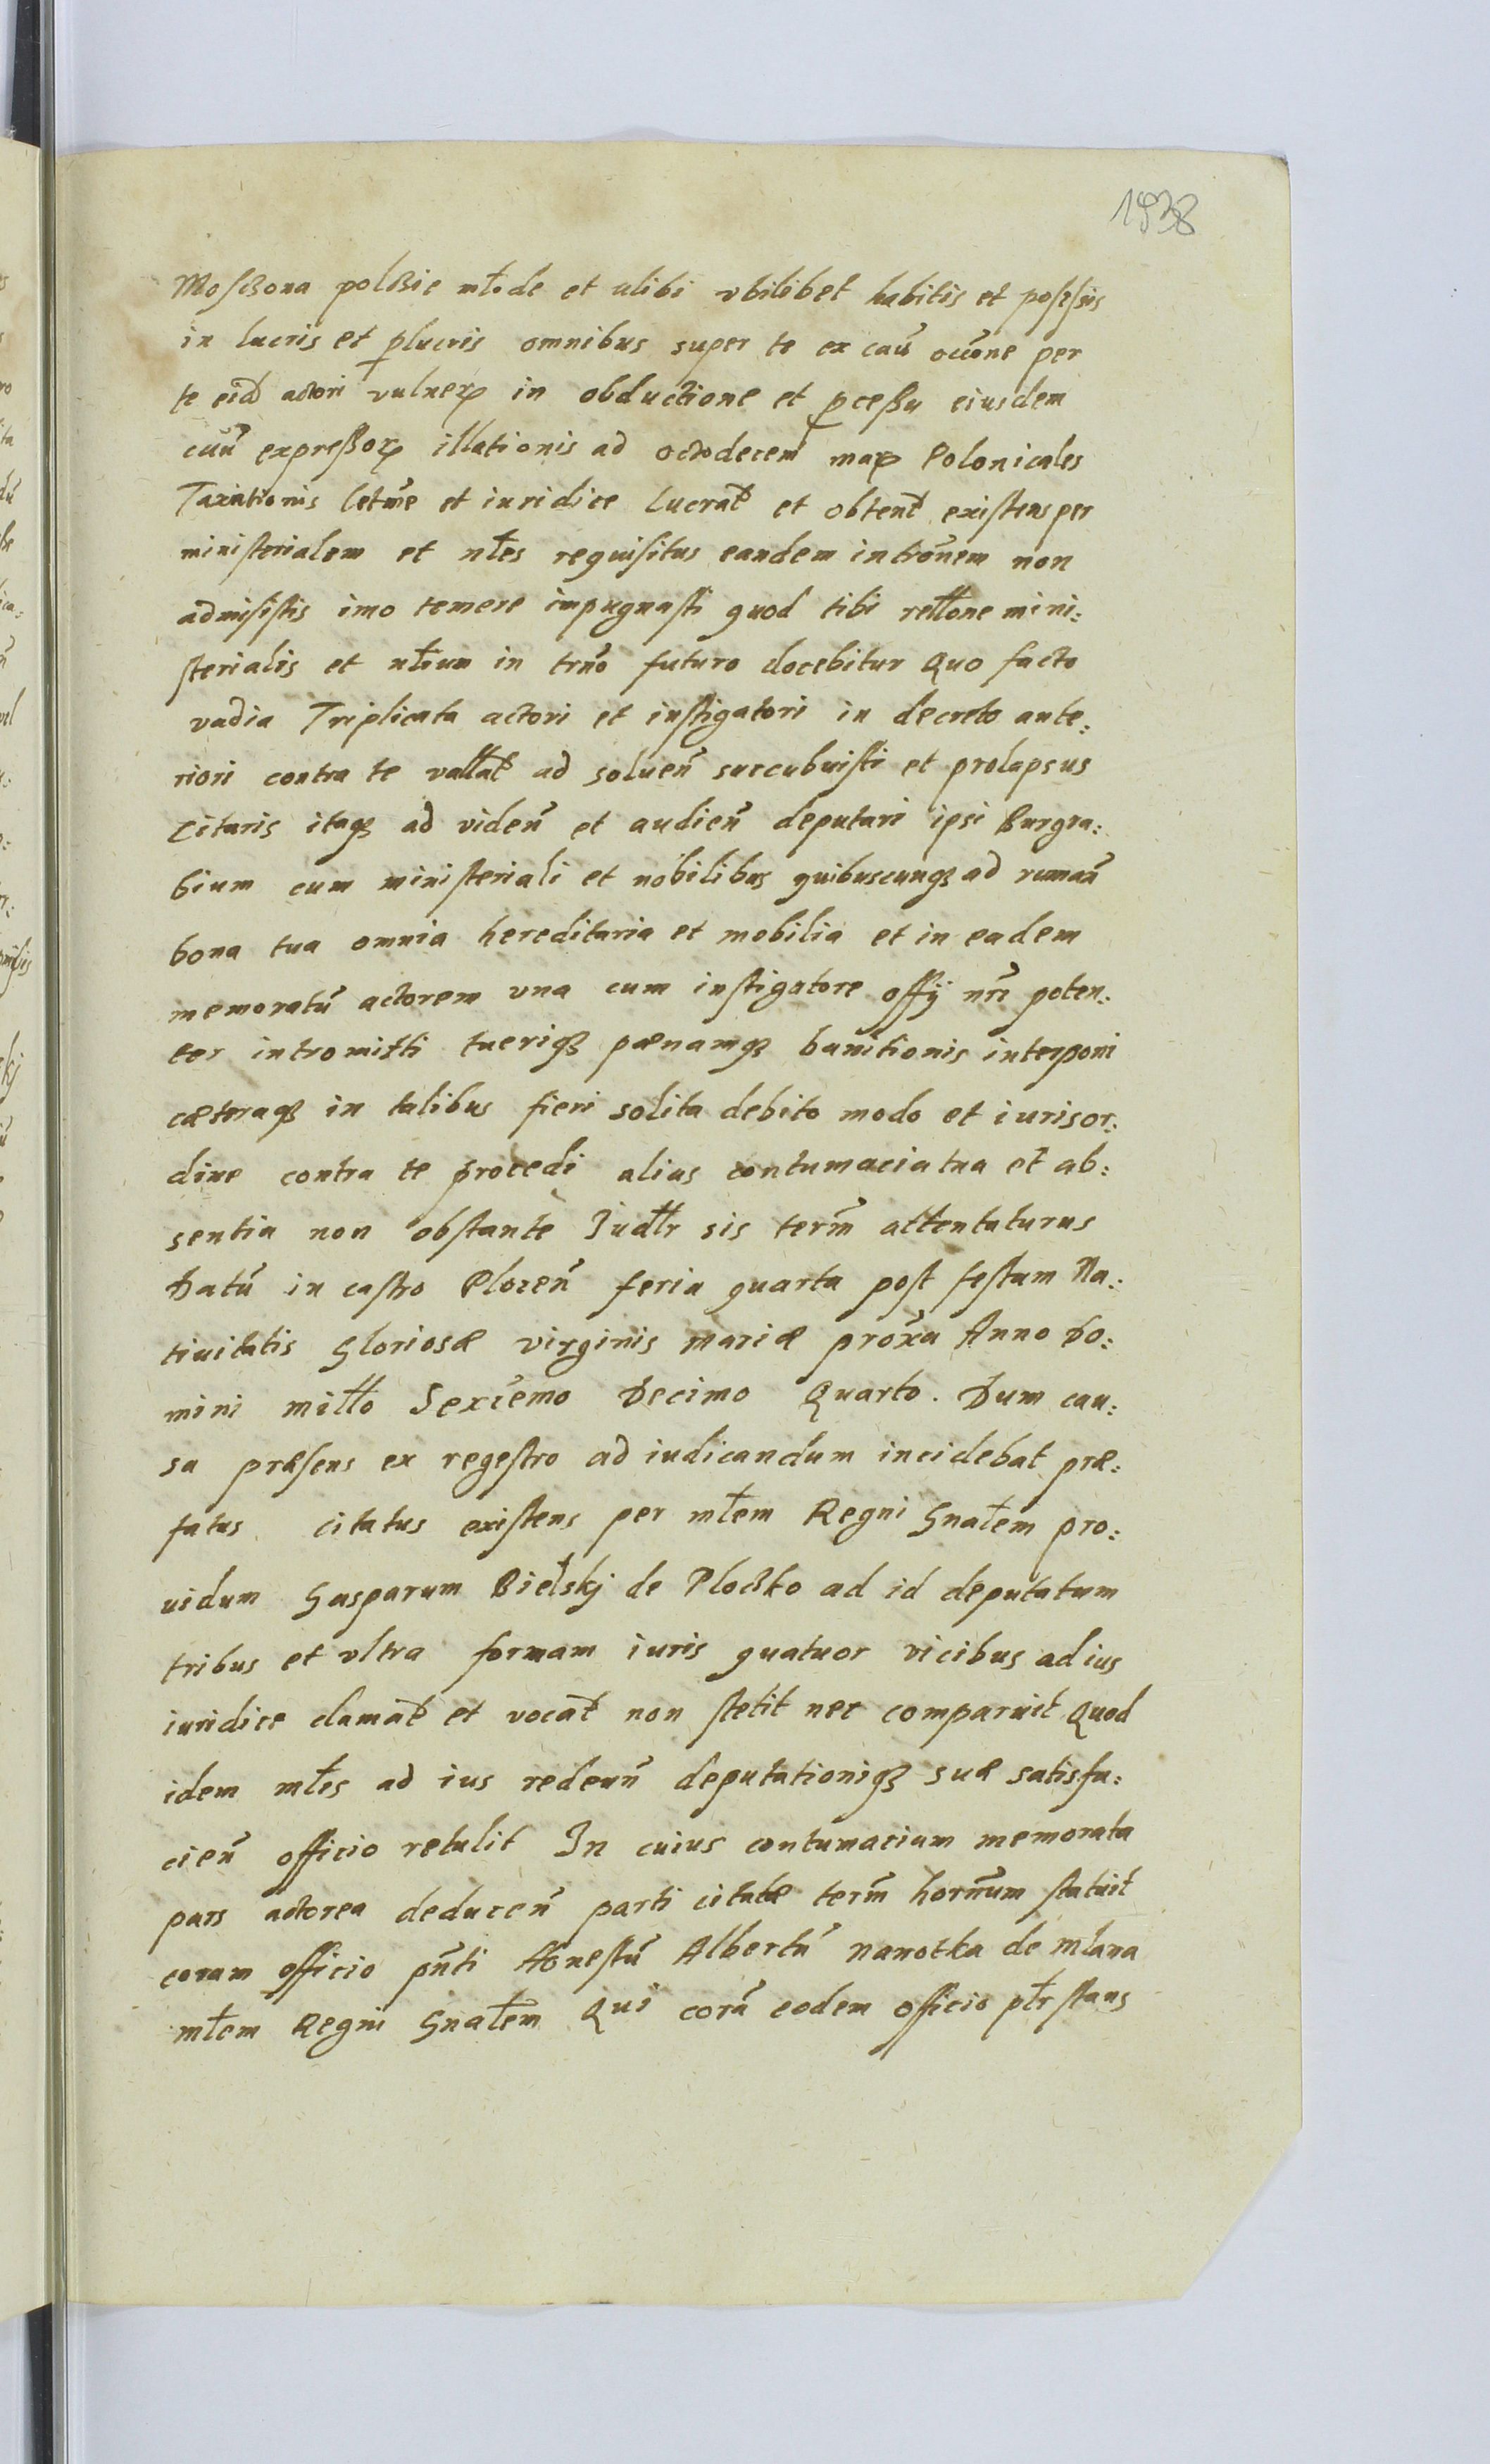 1938
Moſczona polczie mło̵de et alibi vbilibet habitis et poſeſsis
in lucris et ꝑlucris omnibus super te ex caũ occ̃one per
te eid̃ actori vulneꝝ in obductione et ꝓceßu eiusdem
cuũ expreßoꝝ illationis ad octodecem maꝝ Polonicales
Taxationis letm̃e et iuridice lucrat̃ et obtent̃ existens per
ministerialem et nłes requiſitus eandem introm̃em non
admiſiſtis imo temere impugnaſti quod tibi rełłone mini:
ſterialis et nłium in trm̃o futuro docebitur Quo facto
vadia Triplicata actori et inſtigatori in decreto ante:
riori contra te vallat̃ ad soluen̄ succubuiſti et prolapsus
Citaris itaqꝫ ad viden̄ et audien̄ deputari ipsi Burgra:
bium cum miniſteriali et nobilibus quibuscunqꝫ ad ruman̄
bona tua omnia hereditaria et mobilia et in eadem
memoratũ actorem vna cum inſtigatore offỹ nr̃i poten:
ter intromitti tueriqꝫ pænamqꝫ bannitionis interponi
cæteraqꝫ in talibus fieri solita debito modo et iuris or:
dine contra te procedi alias contumacia tua et ab:
sentia non obſtante Judłłr sis term̃ attentaturus
Datũ in caſtro Plocen̄ feria quarta poſt feſtum Na:
tiuitatis Gloriosæ virginis Mariæ prox̃a Anno Do:
mini miłło Sexc̃emo Decimo Quarto. Dum cau:
sa præſens ex regeſtro ad iudicandum incidebat præ:
fatus citatus exiſtens per młem Regni Gnałem pro:
uidum Gasparum Bielskj de Ploczko ad id deputatum
tribus et vltra formam iuris quatuor vicibus ad ius
iuridice clamat̃ et vocat̃ non ſtetit nec comparuit Quod
idem młes ad ius redeun̄ deputationiqꝫ suæ satisfa:
cien̄ officio retulit In cuius contumaciam memorata
pars actorea deducen̄ parti citatæ term̃ horñum ſtatuit
coram officio pñti Honeſtũ Albertũ Nanotka de Mlawa
młem Regni Gnałem Qui corã eodem officio płr ſtans